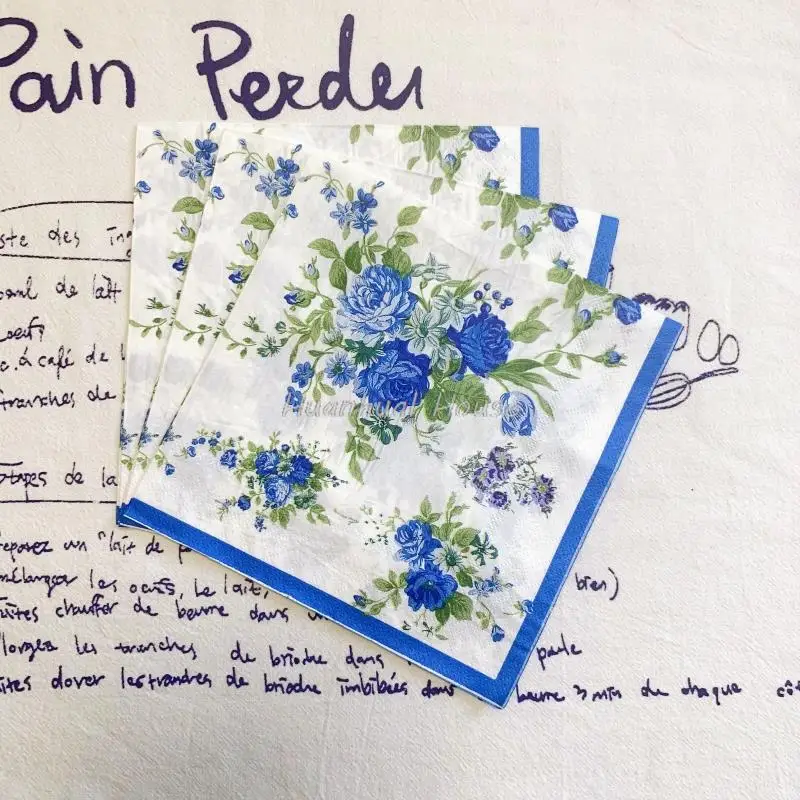 Pain Perdu
ste des ing
de lait
oeufs
c. à café de
tranches de
tapes de la
reposez un "lait de p
mélanger les oeufs, le lait, bien)
aites chauffer de beurre dans un
longez les tranches de brioche dans poele
ites dorer les tranches de brioche imbibées dans beurre 3 min de chaque cô
Huanhuai House